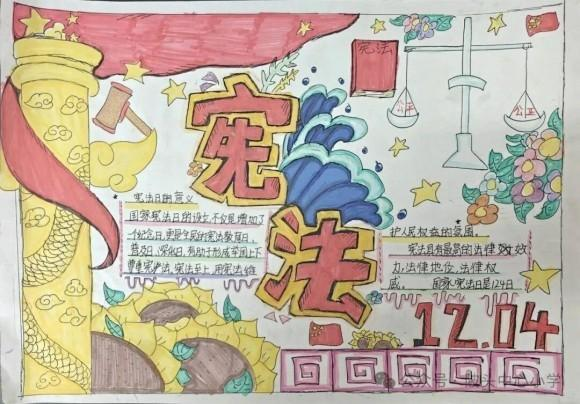 宪法
宪法
公平
公正
宪法日的意义
国家宪法日的设立,不仅是增加了
一个纪念日,更是全民的宪法教育日、
普及日、深化日,有助于形成举国上下
尊重宪法、宪法至上、用宪法维
护人民权益的氛围。
宪法具有最高的法律效
力,法律地位,法律权
威。 国家宪法日是12.4日
12.04
公众号
中心小学